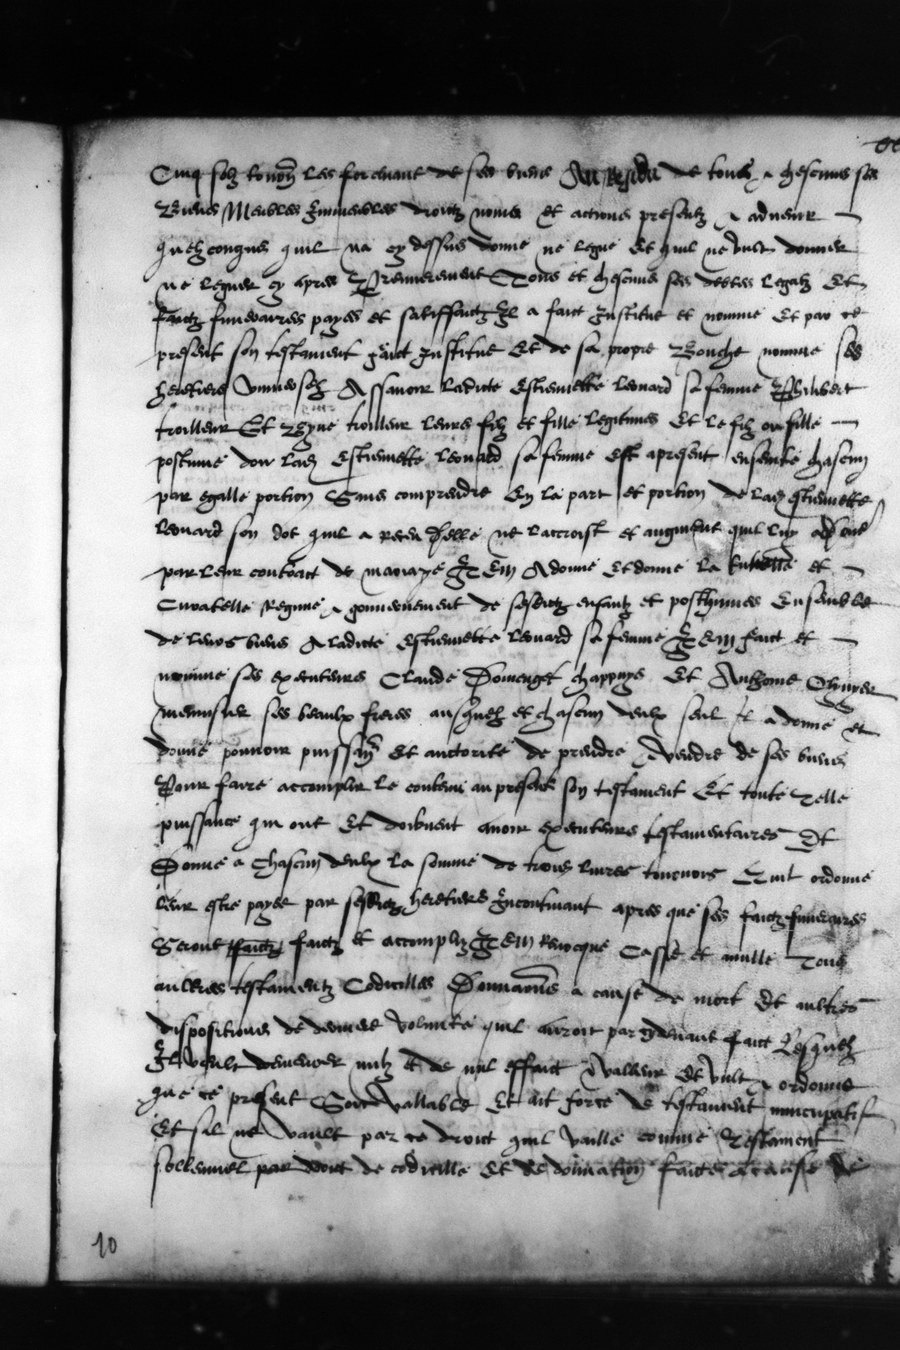 Cinq solz tournois les forcluant de ses biens Au Residu de tous & chescuns ses
Biens Meubles Immeubles droictz noms et actions presentz & advenir
quelzconques quil na cy dessus donne ne legue Et quil ne veult donner
ne leguer cy apres Premierement Tous et chescuns ses debtes legatz Et
fraictz funeraires payes et satisffaictz Il a faict Institue et nomme Et par ce
present son testament faict Institue Et de sa propre Bouche nomme ses
heretiers universelz Assavoir ladicte Estiennette leonard sa femme Philibert
troilleur Et troilleur leurs filz et fille legitimes Et le filz ou fille
postume dou lad Estiennette leonard sa femme Est apresent ensemble chascun
par egalle portion Sans comprendre En la part et portion de lad estiennette
leonard son dot quil a receu delle ne laccroist et augment quil luy
par leur contract de mariage Item A donne Et donne la tuttelle et
Curatelle Regime & gouvernement de sesdictz enfantz et posthumes Ensemble
de leurs biens A ladicte Estiennette leonard sa femme Item faict et
nomme ses executeurs Claude Domenget chappuys Et Anthoine
menusier ses beaulx freres ausquelz et chascun deulx seul Il a donne et
donne pouvoir puissance Et auctorite de prendre & vendre de ses biens
Pour faire accomplir le contenu au present son testament Et toute Telle
puissance qui ont Et doibvent avoir executeurs testamentaires Et
Donne a Chascun deulx la somme de trois livres tournois ordonne
leur estre payee par sesdictz heretiers Incontinant apres que ses faictz funeraires
Seront faictz faictz et accomplyz Item Revocque Casse et anulle Tous
aultres testamentz Codicilles Donnations a cause de mort Et aultres
dispositions de derniere volunte quil auroit par cydevant faict Lesquelz
Il veult demeurer nulz Et de nul effaict & valleur Et veult & ordonne
que ce present Soit vallable Et ait force de testament nuncupatif
Et sil ne vault par ce droict quil vaille comme Testament
sollennel par droict de codicille Et de donnation faicte a cause de
10